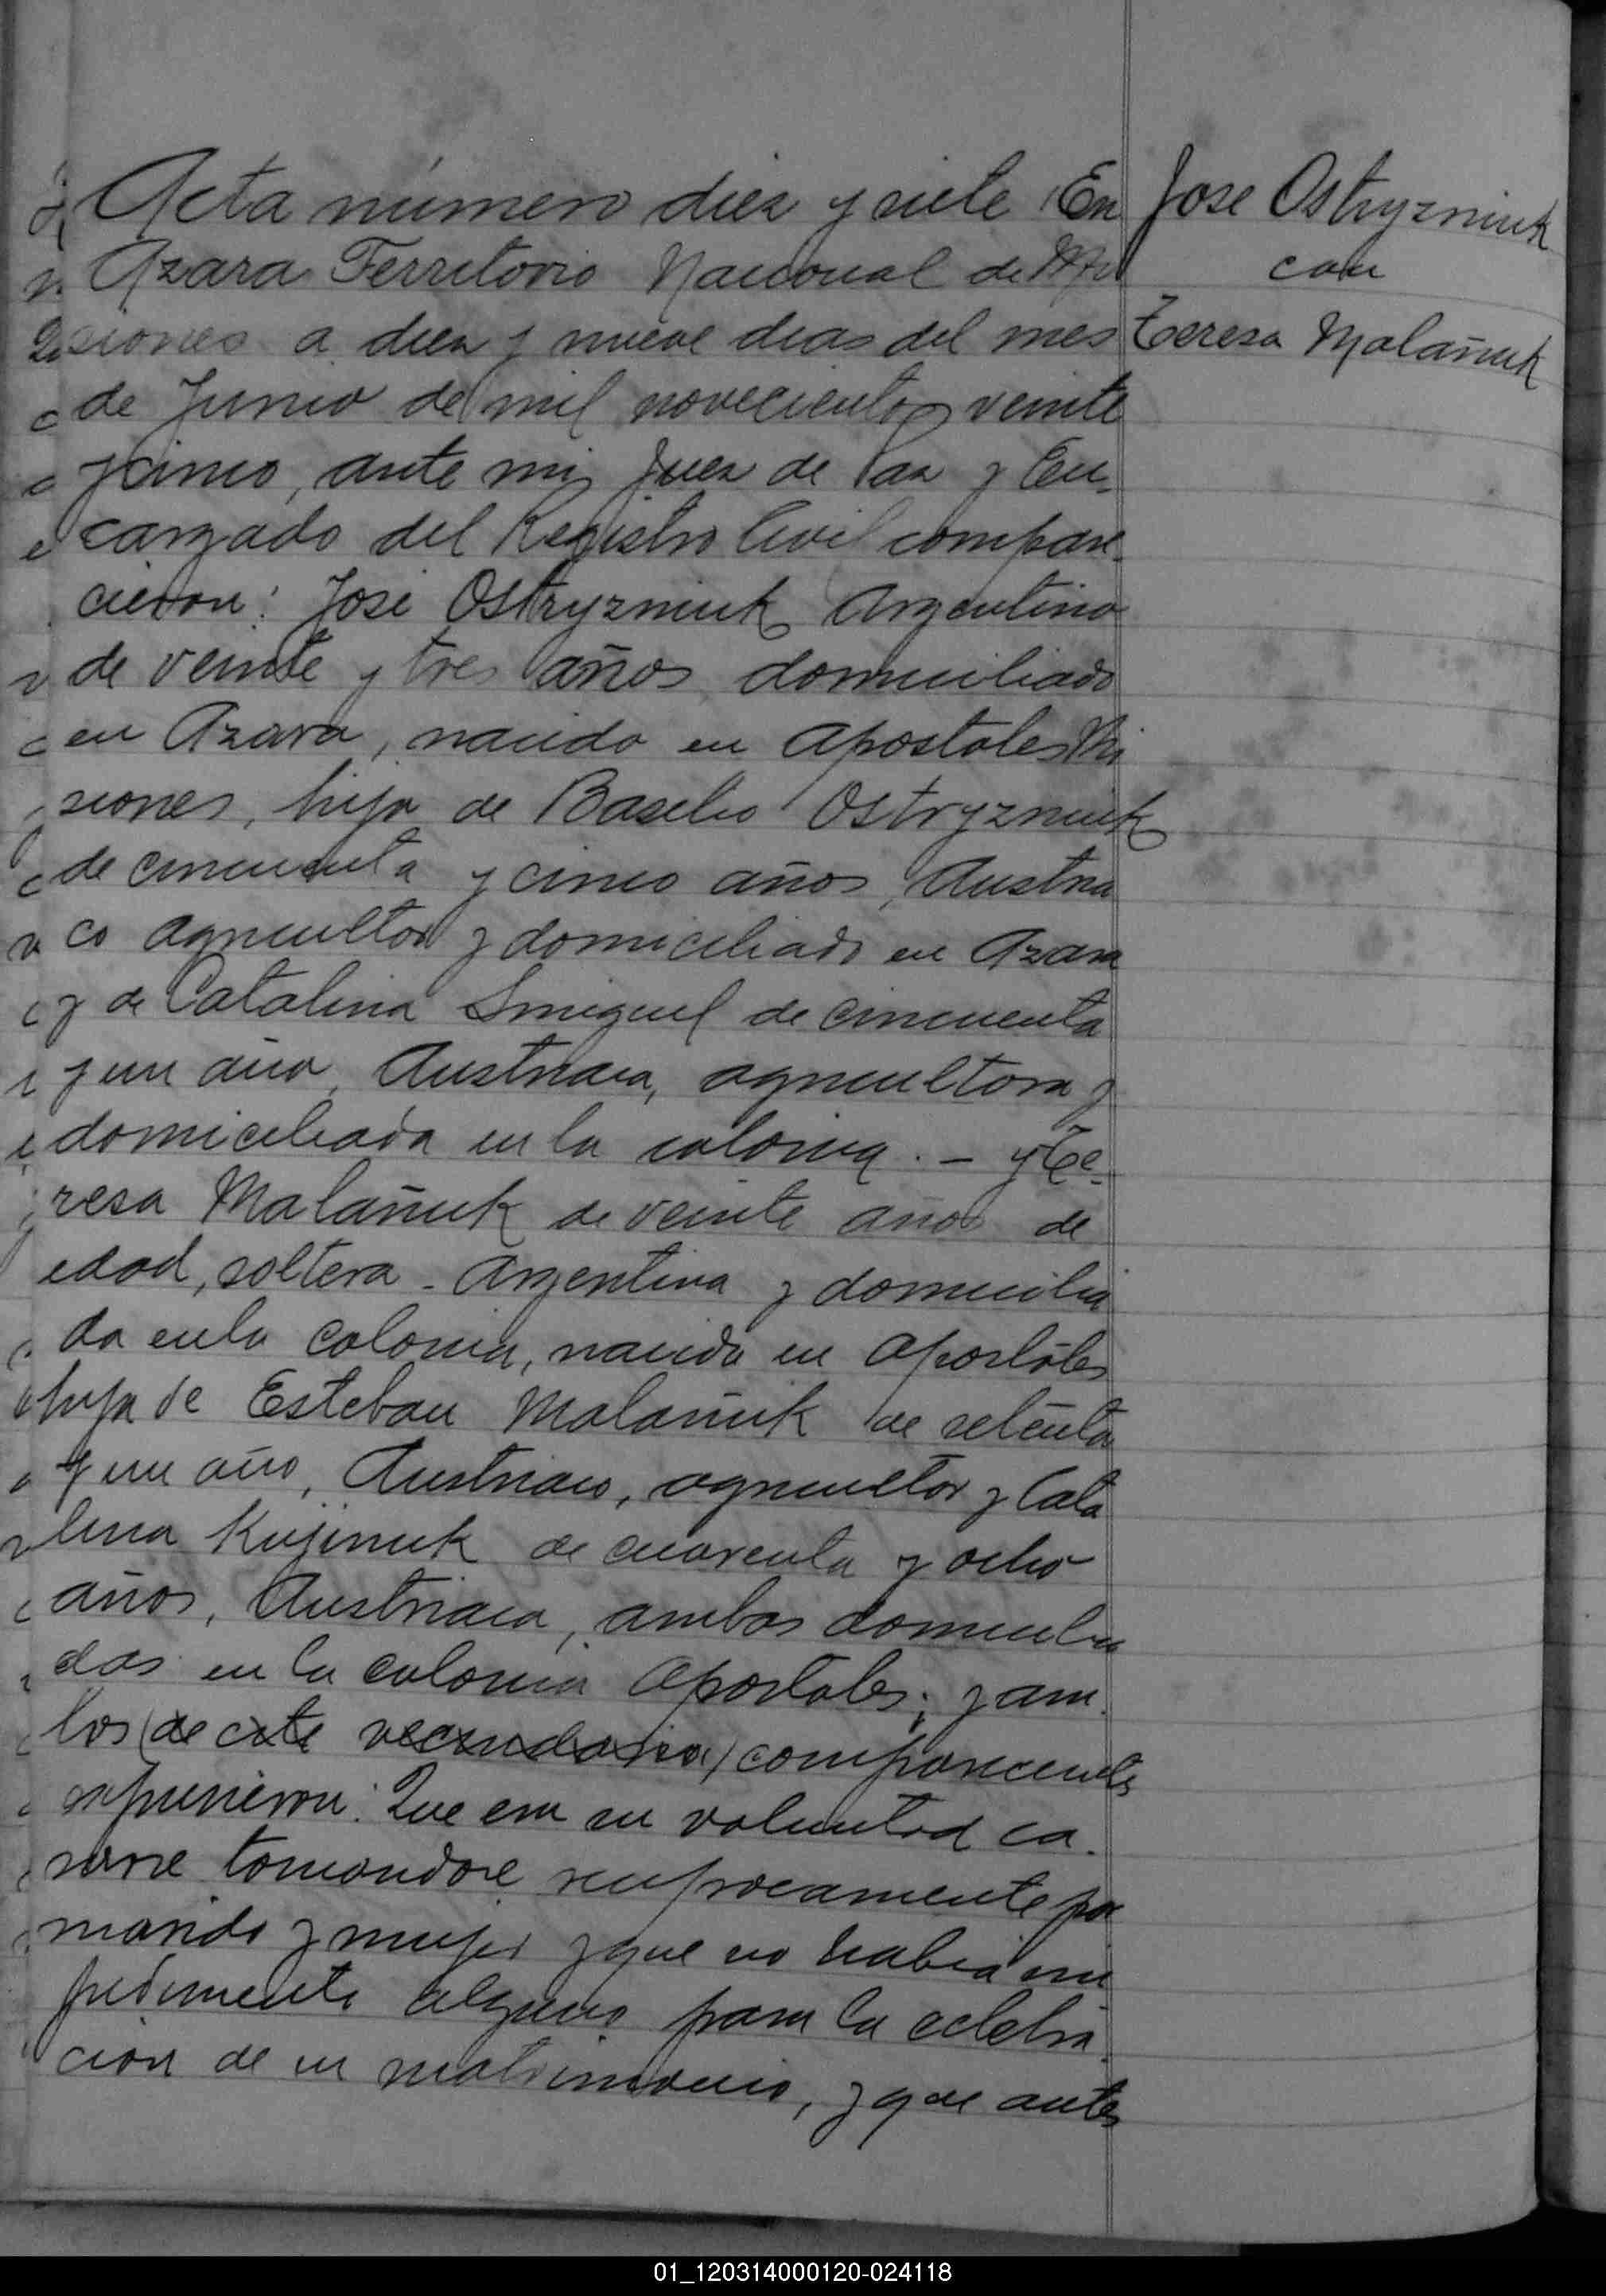 Acta número diez y siete En
Azara Territorio Nacional de Mi
siones a diez y nueve dias del mes
de Junio de mil novecientos veinte
y cinco, ante mi, Juez de Paz y En-
cargado del Registro Civil compare-
cieron: José Ostryzniuk Argentino
de veinte y tres años domiciliado
en Azara, nacido en Apostoles Mi
siones, hijo de Basilio Ostryzniuk
de cincuenta y cinco años, Austria
co agricultor y domiciliado en Azara
y de Catalina Smiguel de cincuenta
y un año, Austriaca, agricultora y
domiciliada en la colonia. - y Te-
resa Malañuk de veinte años de
edad, soltera - Argentina y domicilia
da en la colonia, nacida en Apostóles
hija de Esteban Malañuk de setenta
y un año, Austriaco, agricultor y Cata
lina Kujiniuk de cuarenta y ocho
años, Austriaca, ambos domicilia
dos en la colonia Apostoles; y am-
bos (de este vecindario) comparecientes
expusieron: Que era su voluntad ca-
sarse tomandose reciprocamente por
marido y mujer y que no habia im
pedimento alguno para la celebra-
cion de su matrimonio, y que antes
Jose Ostryzniuk
con
Teresa Malañuk
01_120314000120-024118